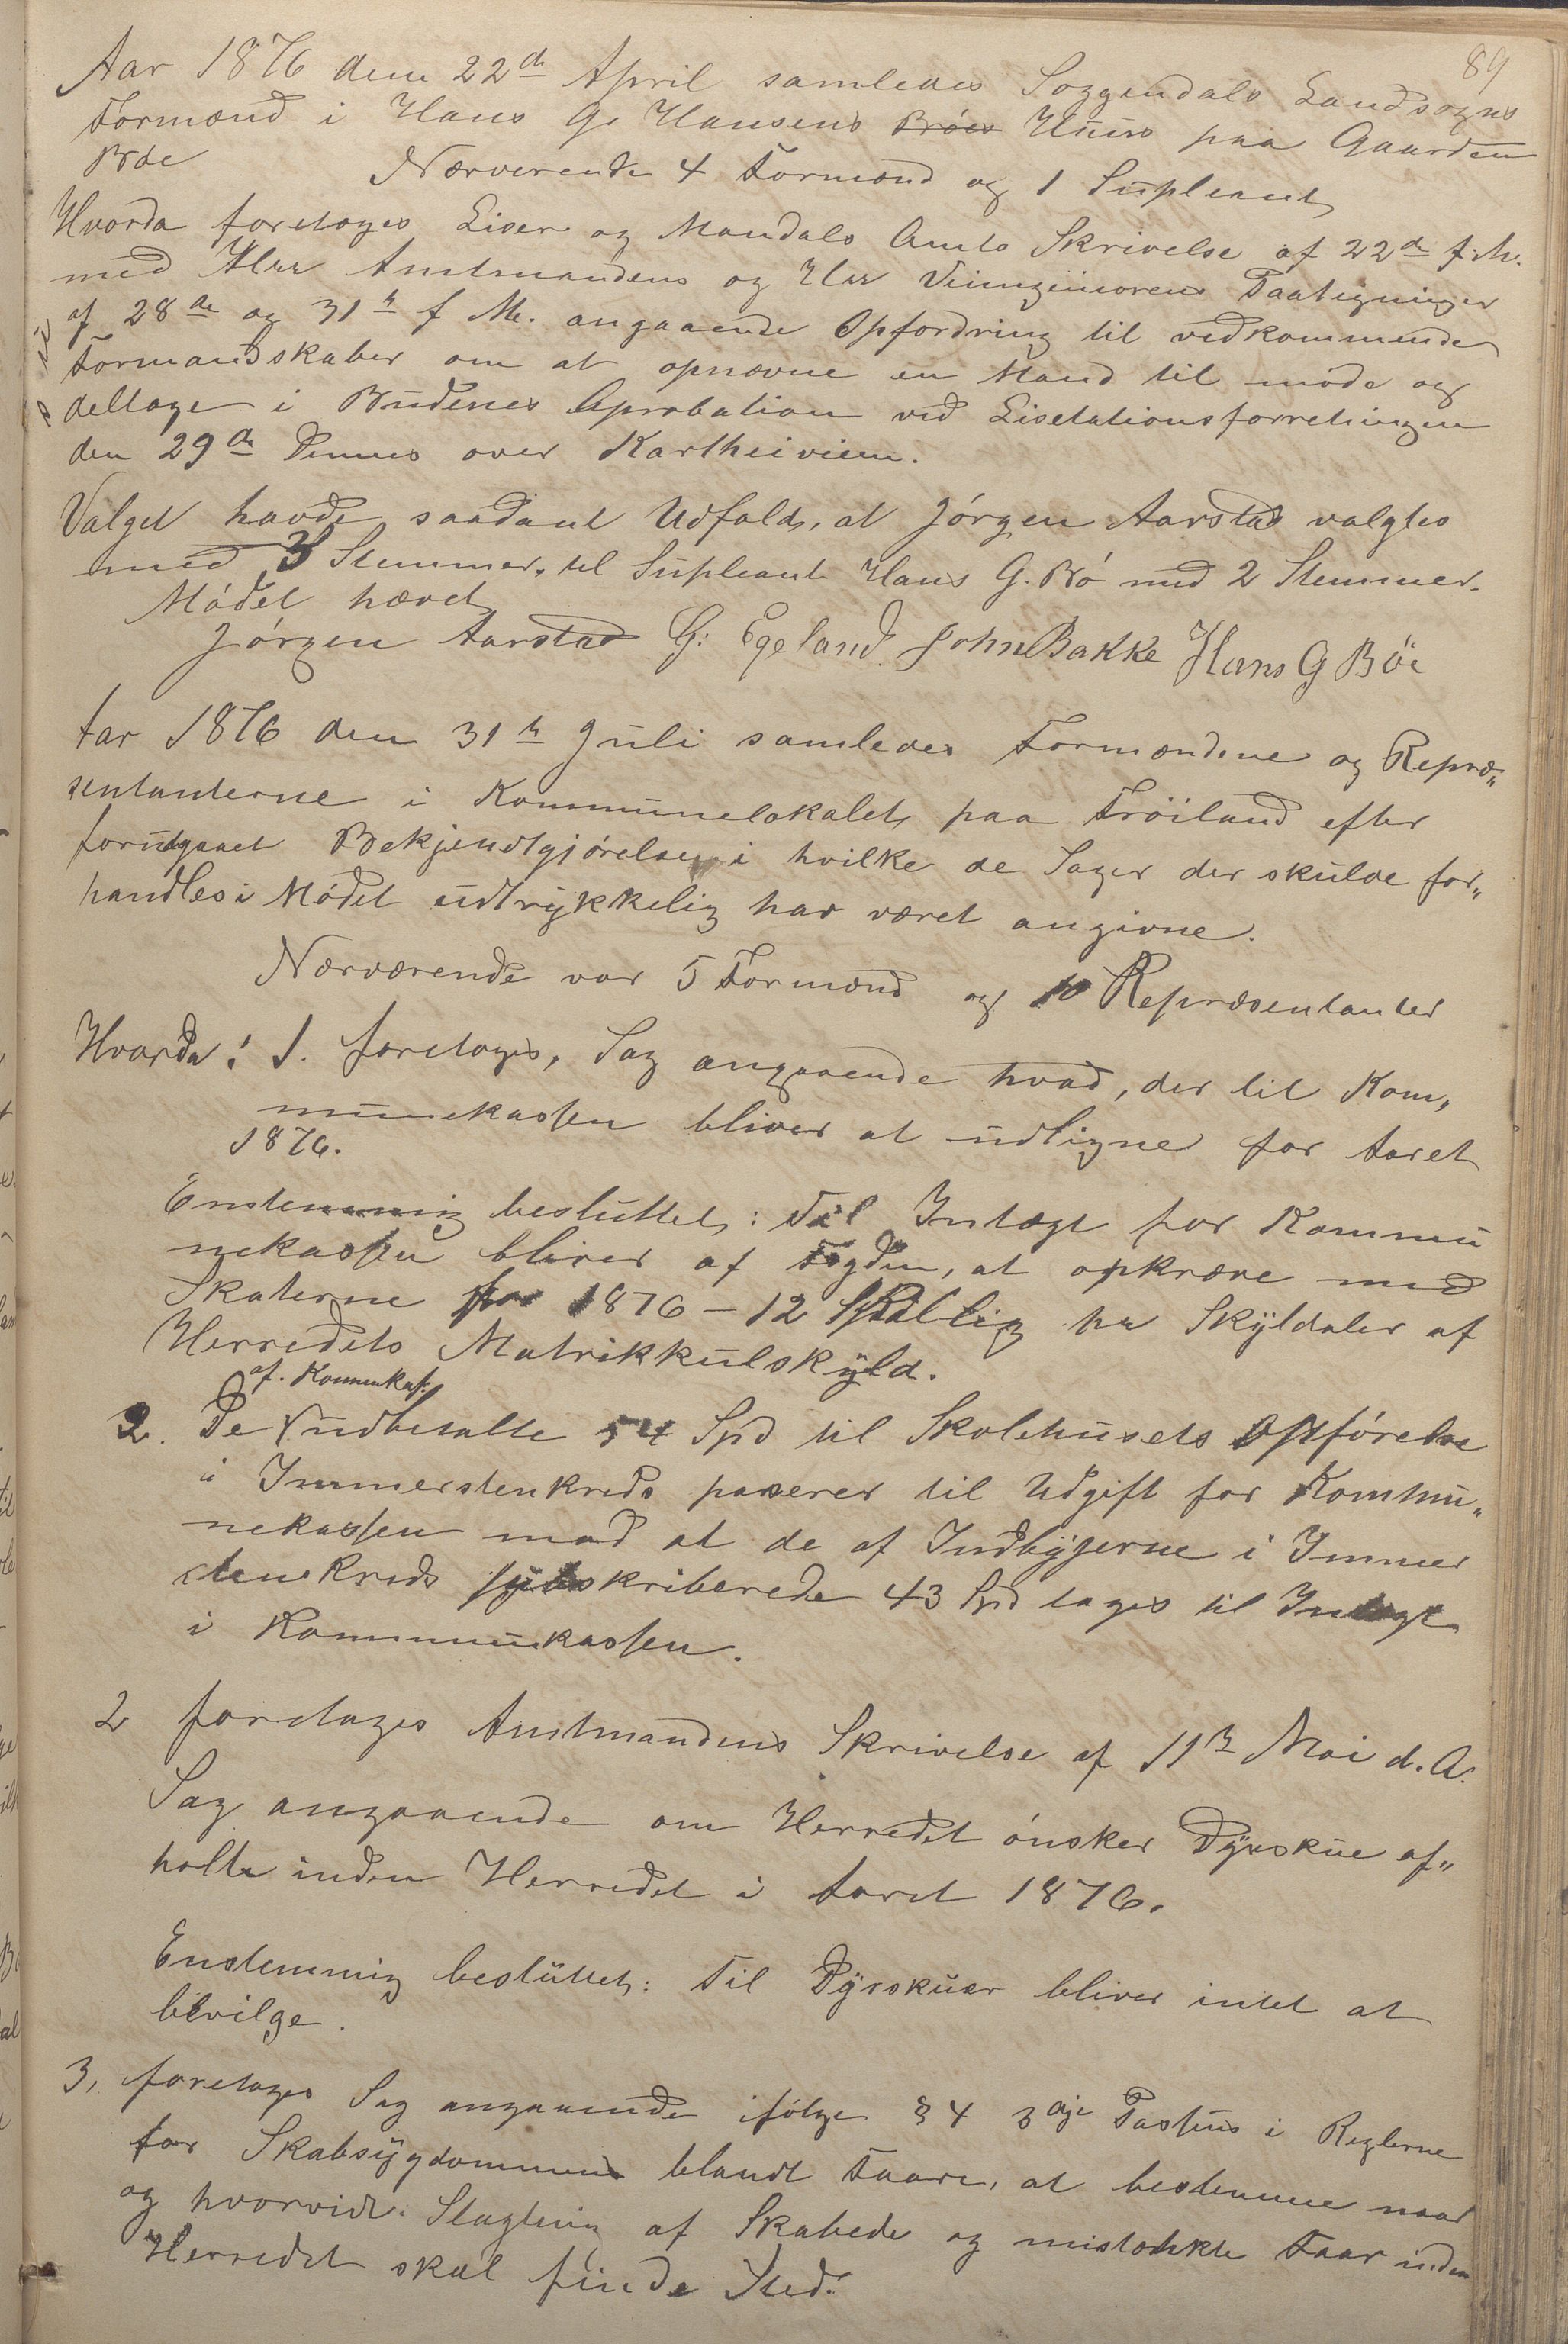 89
Aar 1876 den 22de April samledes Soggendals Landsogns
Formænd i Hans G. Hansens Bröes Huus paa Gaarden
Böe Nærverende 4 Formænd og 1 Supleant
Hvorda foretoges Lister og Mandals Amts Skrivelse af 22de f. M.
med Herr Amtmandens og Herr Veiingeniørens Paategninger
af 28de og 31te f M. angaaende Opfordring til vedkommende
Formandskaber om at opnævne en Mand til møde og
deltage i Budenes Aprobation ved Lisetationsforretningen
den 29de Dennes over Kartheiveien.
Valget havde saadant Udfald, at Jörgen Aarstad valgtes
med 3 Stemmer, til Supleant Hans G. Bö med 2 Stemmer.
Mödet hævet
Jörgen Aarstad G: Egeland. John Bakke Hans G Böe
Aar 1876 den 31te Juli samledes Formændene og Repræ„
sentanterne i Kommunelokalet paa Fröiland efter
forudgaaet Bekjendtgjörelse i hvilke de Sager der skulde for„
handles i Mödet udtrykkelig har været angivne.
Nærværende var 5 Formænd og 10 Repræsentanter
Hvorda: 1. foretoges, Sag angaaende hvad, der til Kom,
munekassen bliver at udligne for Aaret
1876.
Enstemmig besluttet: Til Intægt for Kommu
nekassen bliver af Fogden, at opkræve med
Skaterne for 1876 – 12 Skilling pr Skyldaler af
Herredets Matrikkulskyld.
af. Kommekas.
2. De udbetalte 54 Spd til Skolehusets Opförelse
i Immerstenkreds paserer til Udgift for Kommu„
nekassen mod at de af Indbyserne i Immer
stenkreds subskriberede 43 Spd tages til Intægt
i Kommunekassen.
2 foretoges Amtmandens Skrivelse af 11te Mai d. A.
Sag angaaende om Herredet önsker Dyrskue af„
holte inden Herredet i Aaret 1876.
Enstemmig besluttet: Til Dyrskuer bliver intet at
bevilge.
3, foretoges Sag angaaende ifölge § 4 3die Passus i Reglerne
for Skabsygdommen blandt Faare, at bestemme naar
og hvorvidt Slagtning af Skabede og mistænkte Faar inden
Herredet skal finde Sted.